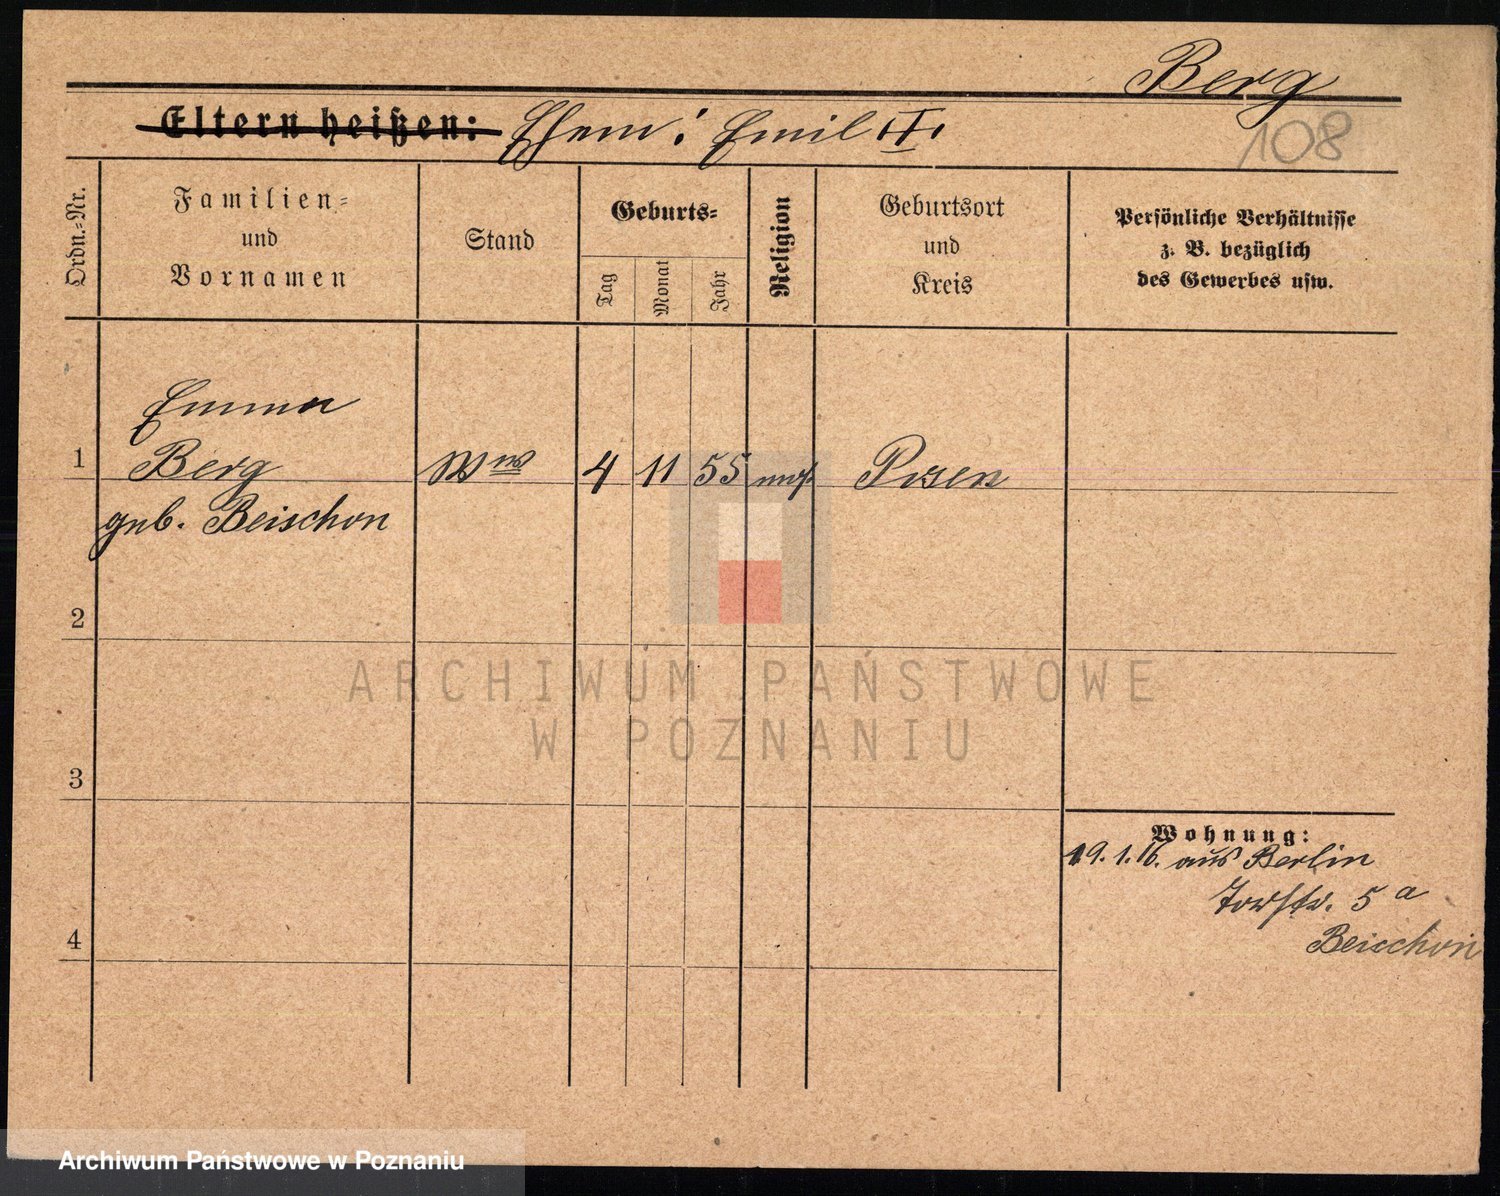 Berg
108
Eltern heißen: Ehem: Emil †.
Ordn.-Nr.
Familien-
und
Vornamen
Stand
Geburts-
Tag
Monat
Jahr
Religion
Geburtsort
und
Kreis
Persönliche Verhältnisse
z. B. bezüglich
des Gewerbes usw.
Emma
1 Berg Wwe 4 11 55 mos Posen
geb. Beischon
2
3
4
Wohnung:
19.1.16. aus Berlin
Torstr. 5a
Beischon
ARCHIWUM PAŃSTWOWE
W POZNANIU
Archiwum Państwowe w Poznaniu